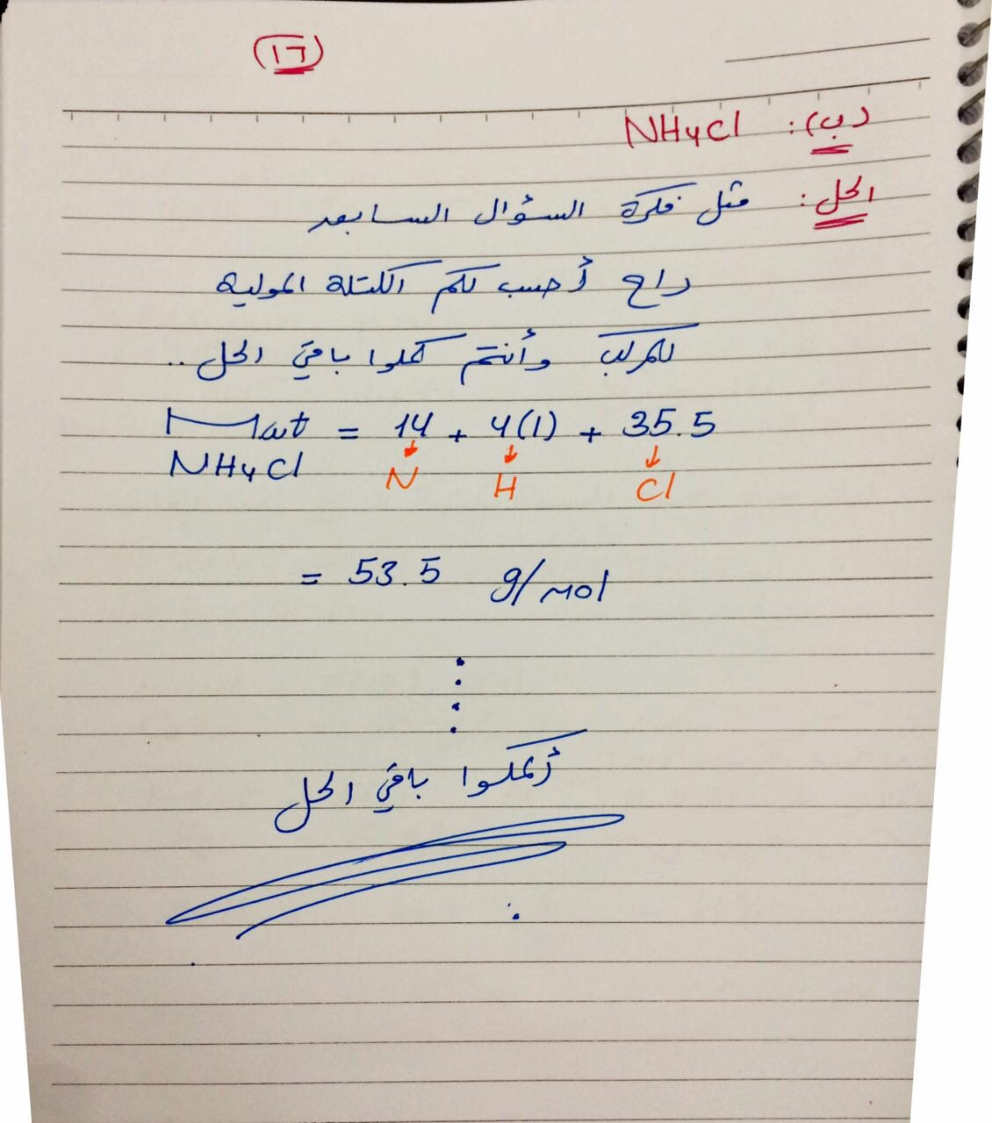 (١٦)
(ب): NH4Cl
الحل: مثل فكرة السؤال السابق
راح أحسب لكم الكتلة المولية
للمركب وأنتم كملوا باقي الحل ..
Mwt = 14 + 4(1) + 35.5
NH4Cl N H Cl
= 53.5 g/mol
أكملوا باقي الحل